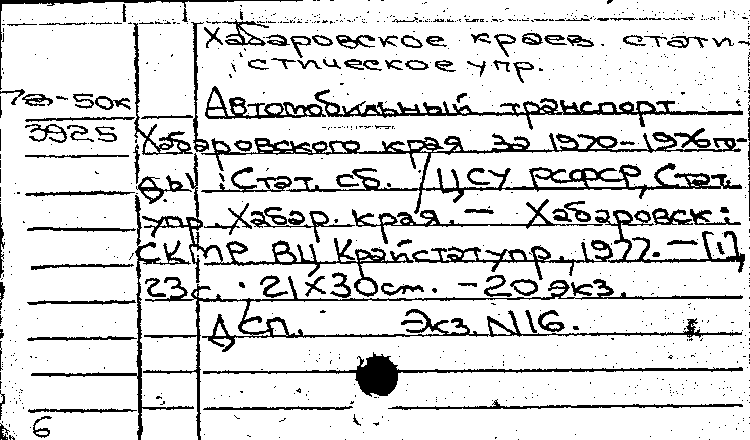 Хабаровское краев. стати-
стическое упр.
78-50к Автомобильный транспорт
3925 Хабаровского края за 1970-1976 го-
ды : Стат. сб. / ЦСУ РСФСР, Стат.
упр. Хабар. края. — Хабаровск :
СКТР ВЦ Крайстатупр., 1977. — [1],
23 с. ; 21X30 см. - 20 экз.
Дсп. Экз. N 16.
6